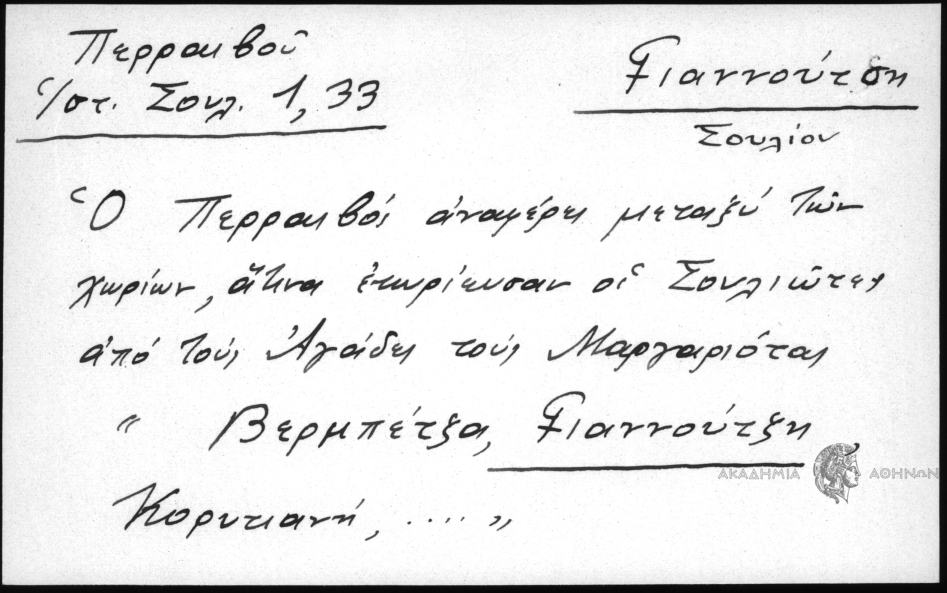 Περραιβοῦ
Ἱστ. Σουλ. 1, 33
Γιαννούτση
Σουλίου
Ὁ Περραιβός ἀναφέρει μεταξύ τῶν
χωρίων, ἅτινα ἐκυρίευσαν οἱ Σουλιῶτες
ἀπό τούς Ἀγάδες τούς Μαργαριότας
" Βερμπέτζα, Γιαννούτζη
Κορυτιανή, .... "
ΑΚΑΔΗΜΙΑ ΑΘΗΝΩΝ